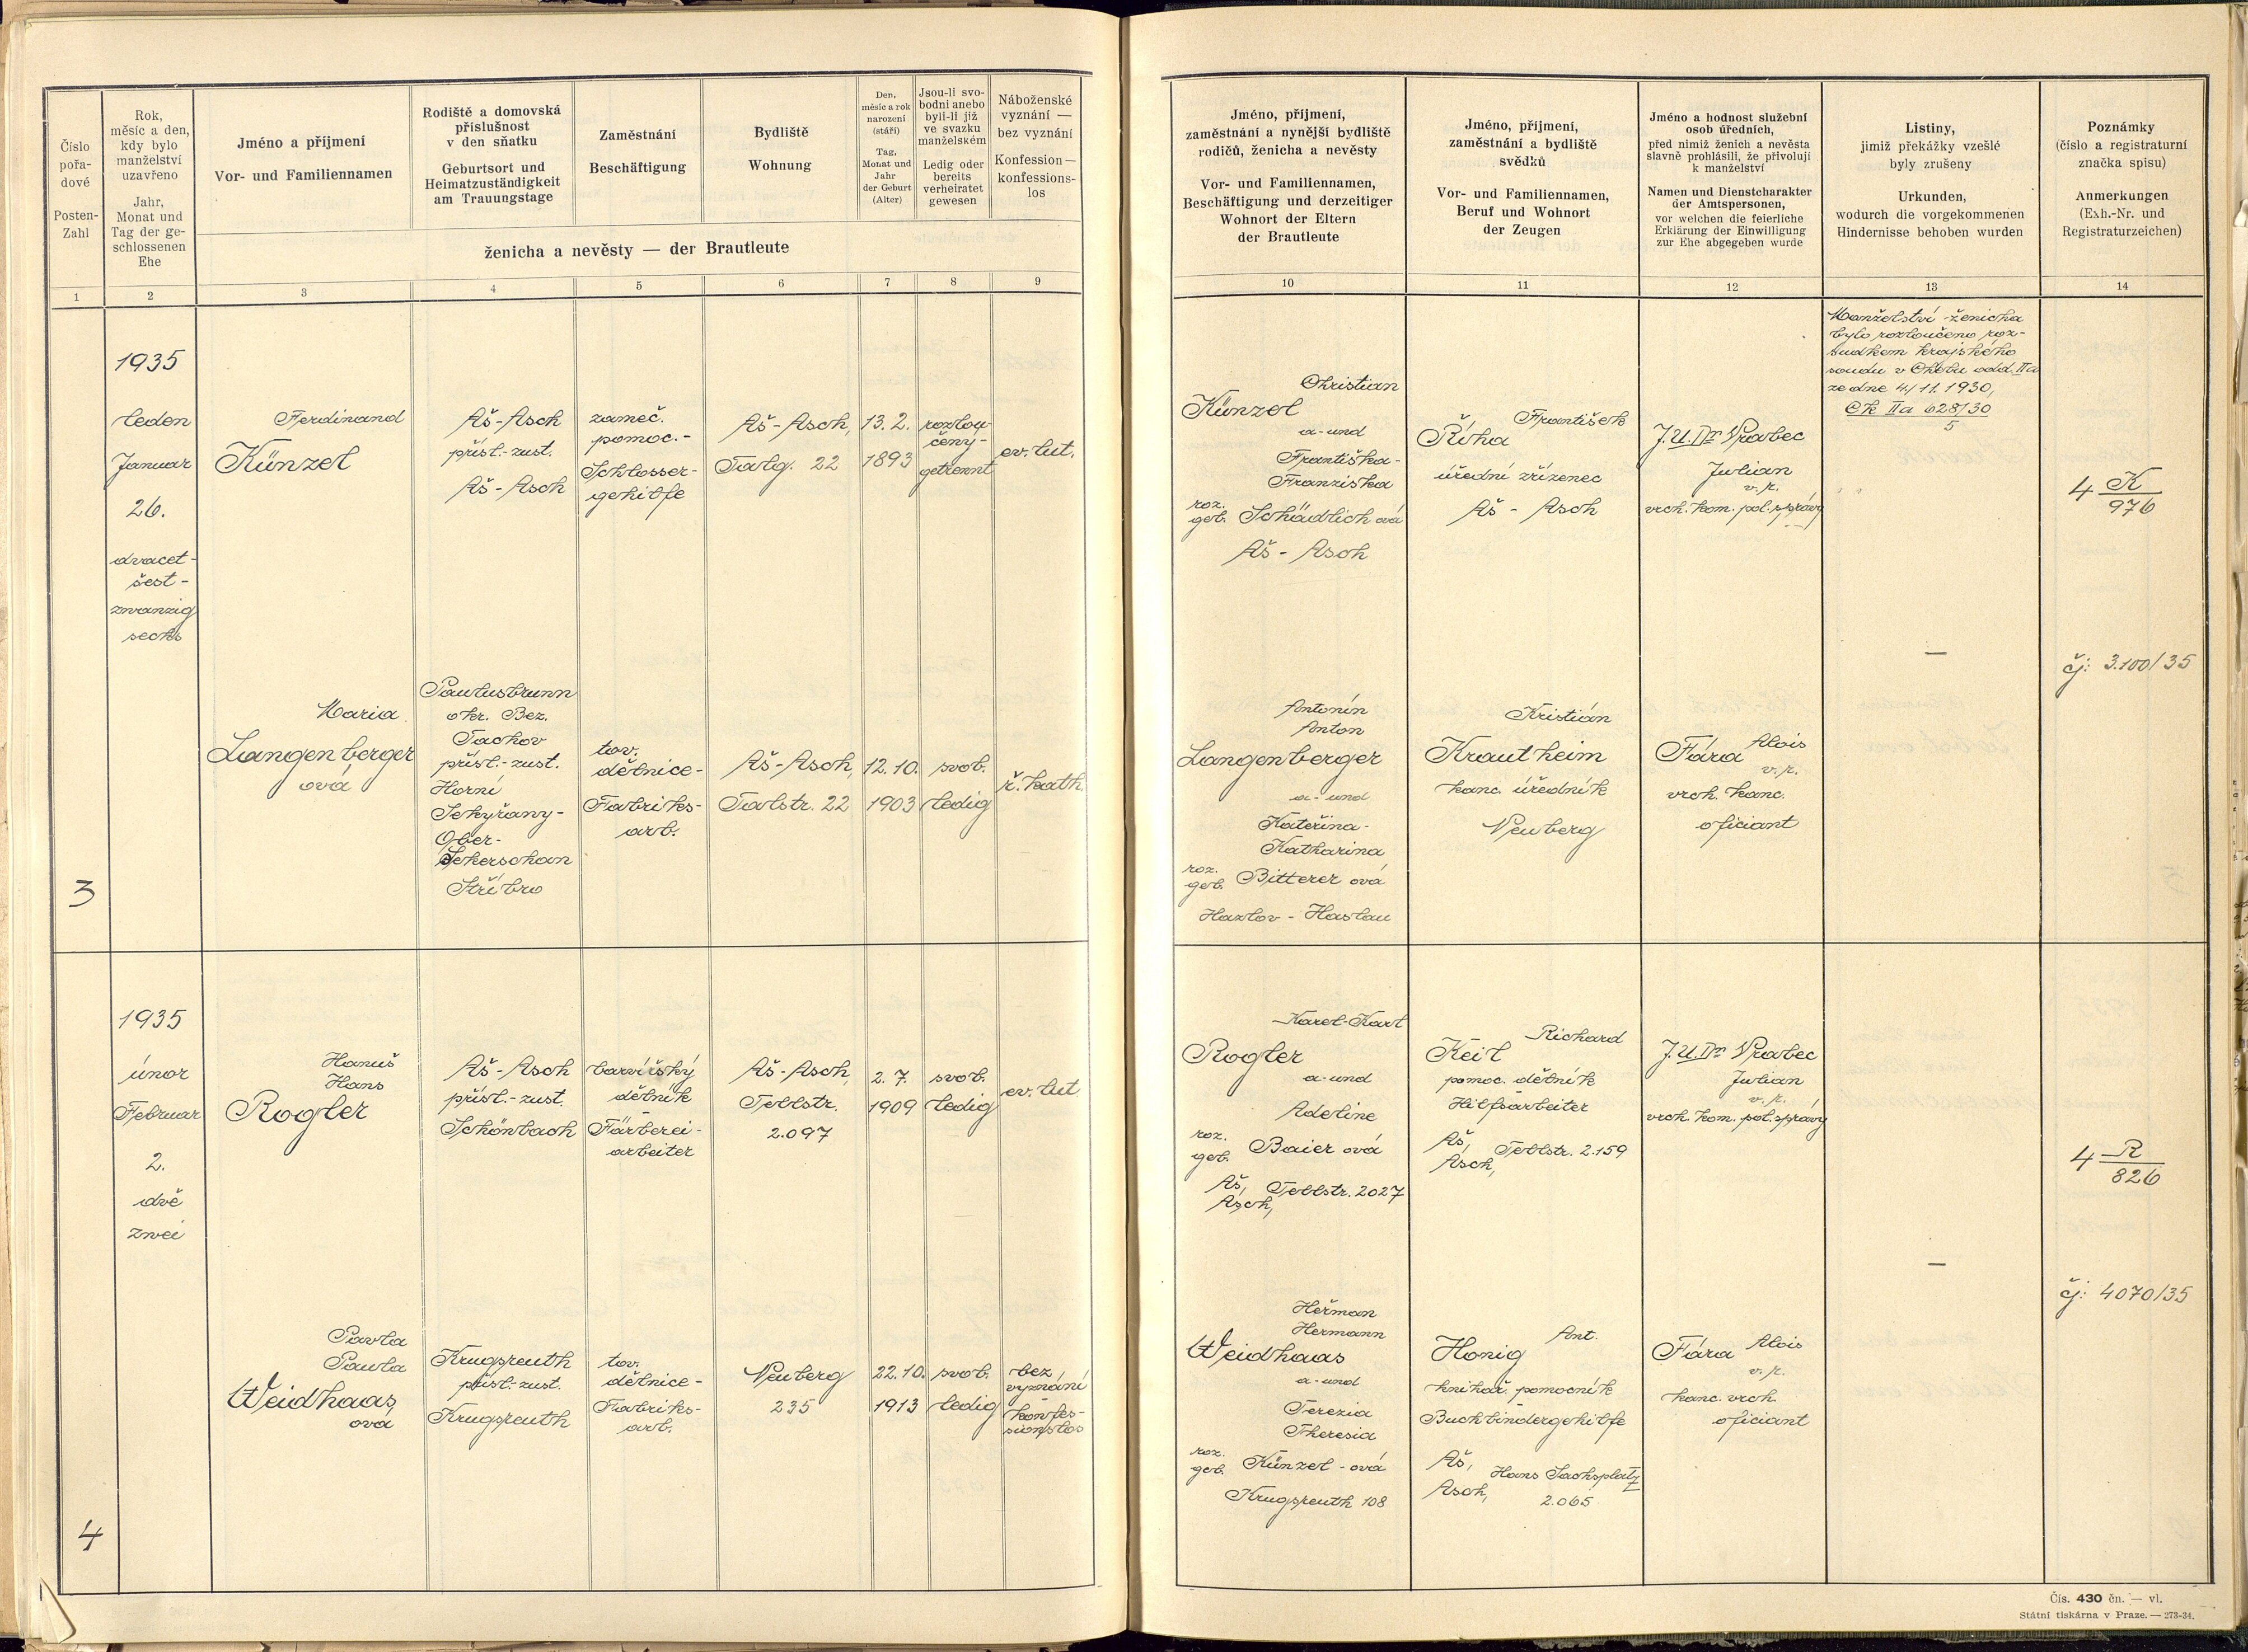 Číslo
pořa-
dové
Posten-
Zahl
Rok,
měsíc a den,
kdy bylo
manželství
uzavřeno
Jahr,
Monat und
Tag der ge-
schlossenen
Ehe
Jméno a příjmení
Vor- und Familiennamen
Rodiště a domovská
příslušnost
v den sňatku
Geburtsort und
Heimatzuständigkeit
am Trauungstage
Zaměstnání
Beschäftigung
Bydliště
Wohnung
Den,
měsíc a rok
narození
(stáří)
Tag,
Monat und
Jahr
der Geburt
(Alter)
Jsou-li svo-
bodni anebo
byli-li již
ve svazku
manželském
Ledig oder
bereits
verheiratet
gewesen
Náboženské
vyznání —
bez vyznání
Konfession —
konfessions-
los
ženicha a nevěsty — der Brautleute
1
2
3
4
5
6
7
8
9
Jméno, příjmení,
zaměstnání a nynější bydliště
rodičů, ženicha a nevěsty
Vor- und Familiennamen,
Beschäftigung und derzeitiger
Wohnort der Eltern
der Brautleute
Jméno, příjmení,
zaměstnání a bydliště
svědků
Vor- und Familiennamen,
Beruf und Wohnort
der Zeugen
Jméno a hodnost služební
osob úředních,
před nimiž ženich a nevěsta
slavně prohlásili, že přivolují
k manželství
Namen und Dienstcharakter
der Amtspersonen,
vor welchen die feierliche
Erklärung der Einwilligung
zur Ehe abgegeben wurde
Listiny,
jimiž překážky vzešlé
byly zrušeny
Urkunden,
wodurch die vorgekommenen
Hindernisse behoben wurden
Poznámky
(číslo a registraturní
značka spisu)
Anmerkungen
(Exh.-Nr. und
Registraturzeichen)
10
11
12
13
14
3
1935
leden
Januar
26.
dvacet-
šest-
zwanzig
sechs
Ferdinand
Künzel
Aš-Asch
přísl.-zust.
Aš-Asch
zameč.
pomoc.-
Schlosser-
gehilfe
Aš-Asch,
Talg. 22
13. 2.
1893
rozlou-
čený-
getrennt
ev. lut.
Christian
Künzel
a-und
Františka-
Franziska
roz.
geb. Schädlich ová
Aš - Asch
František
Říha
úřední zřízenec
Aš - Asch
J.U.Dr Vrabec
Julian
v.r.
vrch. kom. pol. správy
Manželství ženicha
bylo rozloučeno roz-
sudkem krajského
soudu v Chebu odd. IIa
ze dne 4/11.1930,
Ck IIa 628/30
5
4 K
976
Maria
Langenberger
ová
Paulusbrunn
okr. Bez.
Tachov
přísl.-zust.
Horní
Sekyřany-
Ober-
Sekerschan
Stříbro
tov.
dělnice-
Fabriks-
arb.
Aš-Asch,
Talstr. 22
12. 10.
1903
svob.
ledig
ř. kath.
Antonín
Anton
Langenberger
a-und
Kateřina-
Katharina
roz.
geb. Bitterer ová
Hazlov - Haslau
Kristián
Krautheim
kanc. úředník
Neuberg
Alois
Fára
v.r.
vrch. kanc.
oficiant
—
čj: 3.100/35
4
1935
únor
Februar
2.
dvě
zwei
Hanuš
Hans
Rogler
Aš-Asch
přísl.-zust.
Schönbach
barvířský
dělník
Färberei-
arbeiter
Aš-Asch,
Tellstr.
2.097
2. 7.
1909
svob.
ledig
ev. lut
Karel-Karl
Rogler
a-und
Adeline
roz.
geb. Baier ová
Aš,
Asch, Tellstr. 2027
Richard
Keil
pomoc. dělník
Hilfsarbeiter
Aš,
Asch, Tellstr. 2.159
J.U.Dr Vrabec
Julian
v.r.
vrch. kom. pol. správy
4 R
826
Pavla
Paula
Weidhaas
ová
Krugsreuth
přísl.-zust.
Krugsreuth
tov.
dělnice-
Fabriks-
arb.
Neuberg
235
22. 10.
1913
svob.
ledig
bez
vyznání
konfes-
sionslos
Heřman
Hermann
Weidhaas
a-und
Terezia
Theresia
roz.
geb. Künzel - ová
Krugsreuth 108
Ant.
Honig
knihař. pomocník
Buchbindergehilfe
Aš,
Asch, Hans Sachsplatz
2.065
Alois
Fára
v.r.
kanc. vrch.
oficiant
—
čj: 4070/35
Čís. 430 čn. — vl.
Státní tiskárna v Praze. — 273-34.